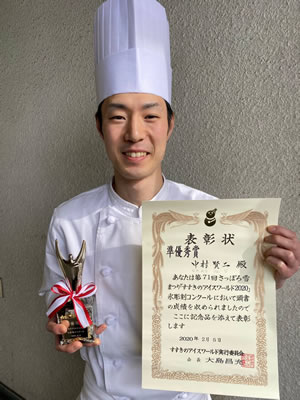 表彰状
準優秀賞
中村賢二 殿
あなたは第71回さっぽろ雪
まつりすすきのアイスワールド2020」
氷彫刻コンクールにおいて頭書
の成績を収められましたので
ここに記念品を添えて表彰
します
2020年2月6日
すすきのアイスワールド実行委員会
会長 大島昌充